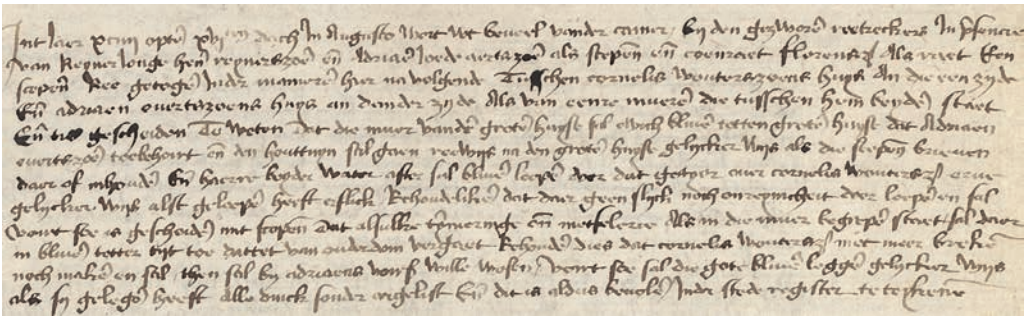 Int Jaer xciij opten xvj dach In Augusto wert uut beveel vander camer by den gezworen reetreckers In p̄sencie
van Reyner Jonge heyn reyerszoen en̄ Adriaen Joede aertszoen als scepen en̄ coenraet florensz Als reet Een
scepen Ree getegen Inder manieren hier na volgende Tusschen cornelis wouterszoens huys An die een zyde
En̄ adriaen evertszoens huys an dander zyde Als van eenre mueren die tusschen hem beyden staet
En̄ tis gescheiden Te weten Dat die muer vanden groten huyse sal ewich bliven totten groten huyse dat Adriaen
evertszoen toebehoirt en̄ den houttuyn sal gaen reewijs na den groten huyse gelycker wijs als die scepen brieven
daer of inhouden En̄ haerre beyder water after sal bliven lopen over dat gotgat over cornelis woutersz erve
gelycker wijs alst gelopen heeft erflick Behoudeliken dat daer geen slyck noch onreynicheit doer lopen en sal
Voirt soe is gescheiden mit scepen Dat alsulke tymeringe en̄ metselerie Als in die muer begrepen staet sal daer
in bliven totter tijt toe dattet van ouderdom vergaet Behouden dies dat cornelis woutersz niet meer breken
noch maken en sal then sal by adriaens voirs wille wesen Voirt soe sal die gote bliven leggen gelycker wijs
als sy gelegen heeft alle dinck sonder argelist En̄ dit is aldus bevolen Inder stede register te teykenen